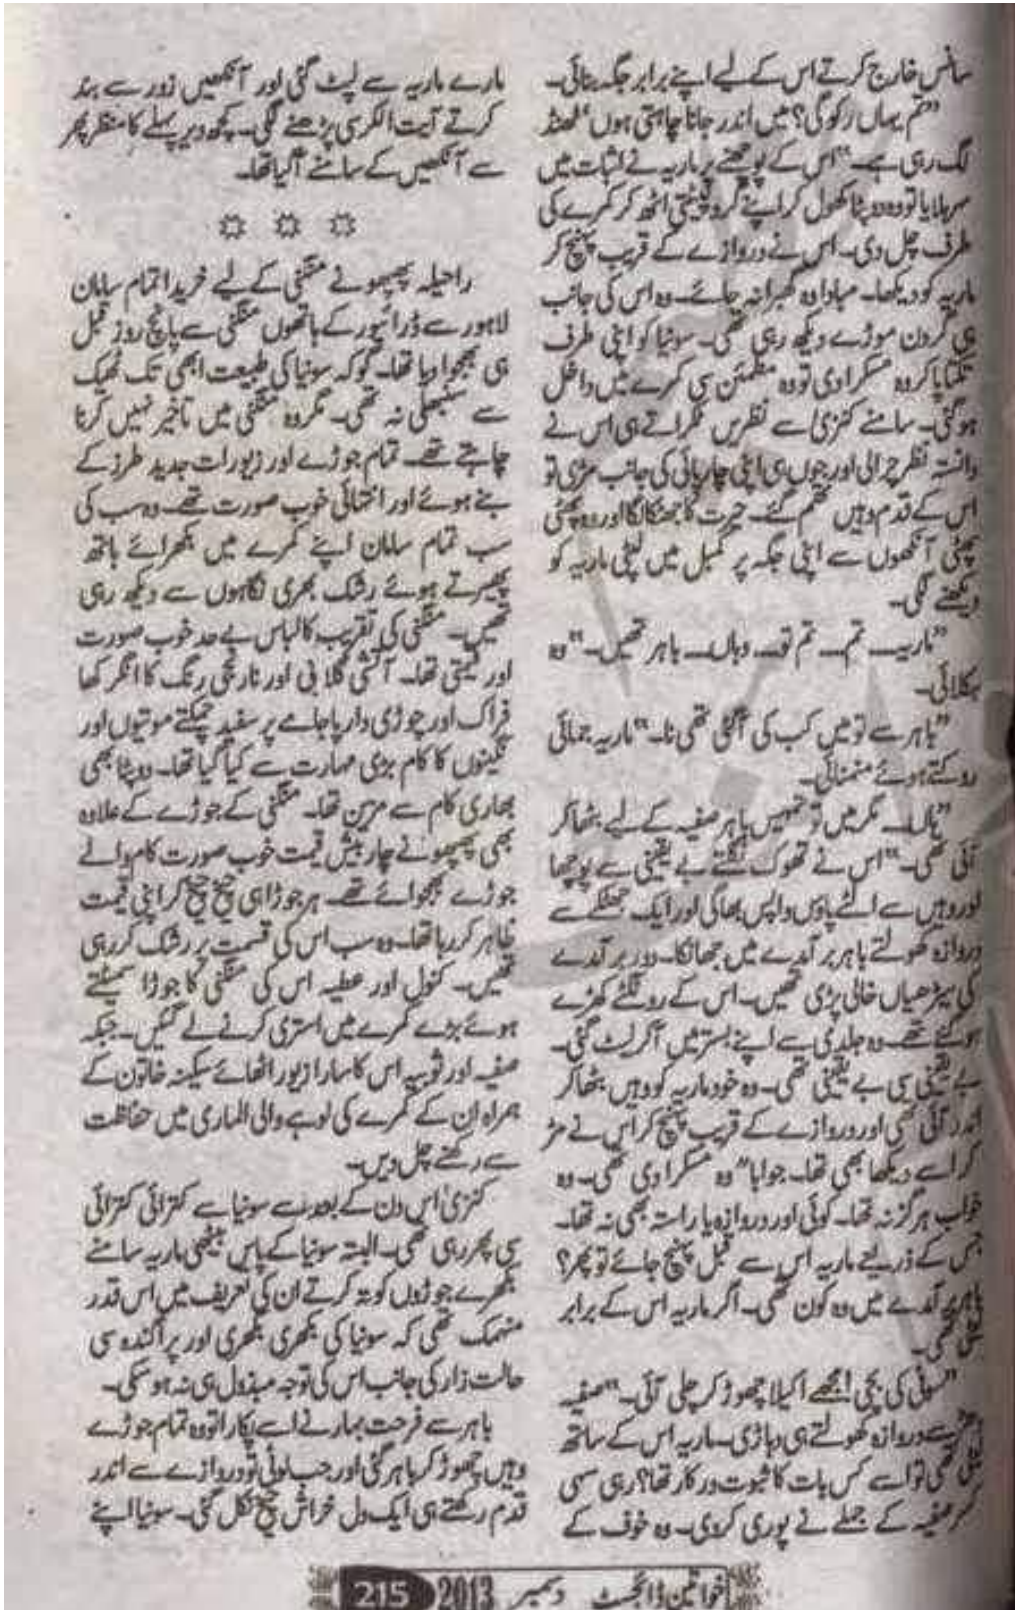 سانس خارج کرتے اس کے لیے اپنے برابر جگہ بنائی۔
"تم یہاں رکو گی؟ میں اندر جانا چاہتی ہوں' ٹھنڈ
لگ رہی ہے۔" اس کے پوچھنے پر ماریہ نے اثبات میں
سر ہلایا تو وہ دوپٹا کھول کر اپنے گرد لپیٹتی اٹھ کر کمرے کی
طرف چل دی۔ اس نے دروازے کے قریب پہنچ کر
ماریہ کو دیکھا۔ مبادا وہ گھبرا نہ جائے۔ وہ اس کی جانب
ہی گردن موڑے دیکھ رہی تھی۔ سونیا کو اپنی طرف
تکتا پا کر وہ مسکرا دی تو وہ مطمئن سی کمرے میں داخل
ہو گئی۔ سامنے کنزیٰ سے نظریں ٹکراتے ہی اس نے
دانستہ نظر چرالی اور جوں ہی اپنی چارپائی کی جانب مڑی تو
اس کے قدم وہیں تھم گئے۔ حیرت کا جھٹکا لگا اور وہ پھٹی
پھٹی آنکھوں سے اپنی جگہ پر کمبل میں لپٹی ماریہ کو
دیکھنے لگی۔
"ماریہ۔۔ تم۔۔ تم تو۔۔ وہاں۔۔ باہر تھیں۔" وہ
ہکلائی۔
"باہر سے تو میں کب کی آ گئی تھی نا۔" ماریہ جمائی
روکتے ہوئے منمنائی۔
"ہاں۔۔ مگر میں تو تمہیں باہر صفیہ کے لیے بٹھا کر
آئی تھی۔" اس نے تھوک نگلتے بے یقینی سے پوچھا
اور وہیں سے الٹے پاؤں واپس بھاگی اور ایک جھٹکے سے
دروازہ کھولتے باہر برآمدے میں جھانکا۔ دور برآمدے
کی سیڑھیاں خالی پڑی تھیں۔ اس کے رونگٹے کھڑے
ہو گئے تھے۔ وہ جلدی سے اپنے بستر میں آ کر لیٹ گئی۔
بے یقینی سی بے یقینی تھی۔ وہ خود ماریہ کو وہیں بٹھا کر
اندر آئی تھی اور دروازے کے قریب پہنچ کر اس نے مڑ
کر اسے دیکھا بھی تھا۔ جوابا" وہ مسکرا دی تھی۔ وہ
خواب ہرگز نہ تھا۔ کوئی اور دروازہ یا راستہ بھی نہ تھا۔
جس کے ذریعے ماریہ اس سے قبل پہنچ جائے تو پھر؟
باہر برآمدے میں وہ کون تھی۔ اگر ماریہ اس کے برابر
لیٹی تھی۔
"سونی کی بچی! مجھے اکیلا چھوڑ کر چلی آئی۔" صفیہ
دھڑ سے دروازہ کھولتے ہی دہاڑی۔ ماریہ اس کے ساتھ
لیٹی تھی تو اسے کس بات کا ثبوت درکار تھا؟ رہی سہی
کسر صفیہ کے جملے نے پوری کر دی۔ وہ خوف کے
مارے ماریہ سے لپٹ گئی اور آنکھیں زور سے بند
کرتے آیت الکرسی پڑھنے لگی۔ کچھ دیر پہلے کا منظر پھر
سے آنکھوں کے سامنے آ گیا تھا۔
راحیلہ پھپھو نے منگنی کے لیے خریدا تمام سامان
لاہور سے ڈرائیور کے ہاتھوں منگنی سے پانچ روز قبل
ہی بھجوا دیا تھا۔ گو کہ سونیا کی طبیعت ابھی تک ٹھیک
سے سنبھلی نہ تھی۔ مگر وہ منگنی میں تاخیر نہیں کرنا
چاہتے تھے۔ تمام جوڑے اور زیورات جدید طرز کے
بنے ہوئے اور انتہائی خوب صورت تھے۔ وہ سب کی
سب تمام سامان اپنے کمرے میں بکھرائے ہاتھ
پھیرتے ہوئے رشک بھری نگاہوں سے دیکھ رہی
تھیں۔ منگنی کی تقریب کا لباس بے حد خوب صورت
اور قیمتی تھا۔ آتشی گلابی اور نارنجی رنگ کا انگرکھا
فراک اور چوڑی دار پاجامے پر سفید چمکتے موتیوں اور
نگینوں کا کام بڑی مہارت سے کیا گیا تھا۔ دوپٹا بھی
بھاری کام سے مزین تھا۔ منگنی کے جوڑے کے علاوہ
بھی پھپھو نے چار بیش قیمت خوب صورت کام والے
جوڑے بھجوائے تھے۔ ہر جوڑا ہی چیخ چیخ کر اپنی قیمت
ظاہر کر رہا تھا۔ وہ سب اس کی قسمت پر رشک کر رہی
تھیں۔ کنول اور عطیہ اس کی منگنی کا جوڑا سمیٹتے
ہوئے بڑے کمرے میں استری کرنے لے گئیں۔ جبکہ
صفیہ اور ثوبیہ اس کا سارا زیور اٹھائے سکینہ خاتون کے
ہمراہ ان کے کمرے کی لوہے والی الماری میں حفاظت
سے رکھنے چل دیں۔
کنزیٰ اس دن کے بعد سے سونیا سے کترائی کترائی
سی پھر رہی تھی۔ البتہ سونیا کے پاس بیٹھی ماریہ سامنے
بکھرے جوڑوں کو تہ کرتے ان کی تعریف میں اس قدر
منہمک تھی کہ سونیا کی بکھری بکھری اور پراگندہ سی
حالت زار کی جانب اس کی توجہ مبذول ہی نہ ہو سکی۔
باہر سے فرحت بہار نے اسے پکارا تو وہ تمام جوڑے
وہیں چھوڑ کر باہر گئی اور جب لوٹی تو دروازے سے اندر
قدم رکھتے ہی ایک دل خراش چیخ نکل گئی۔ سونیا اپنے
خواتین ڈائجسٹ دسمبر 2013 215